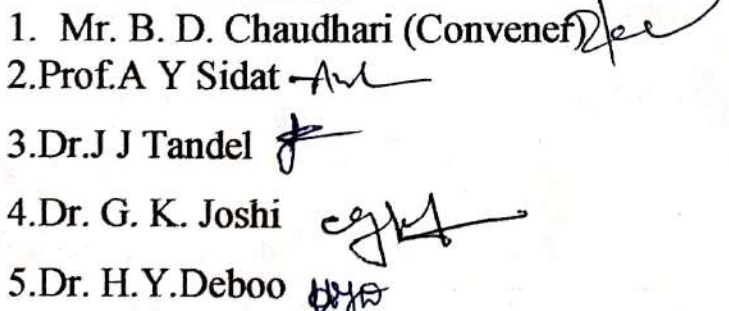 1. Mr. B. D. Chaudhari (Convener)
2.Prof.A Y Sidat
3.Dr.J J Tandel
4.Dr. G. K. Joshi
5.Dr. H.Y.Deboo